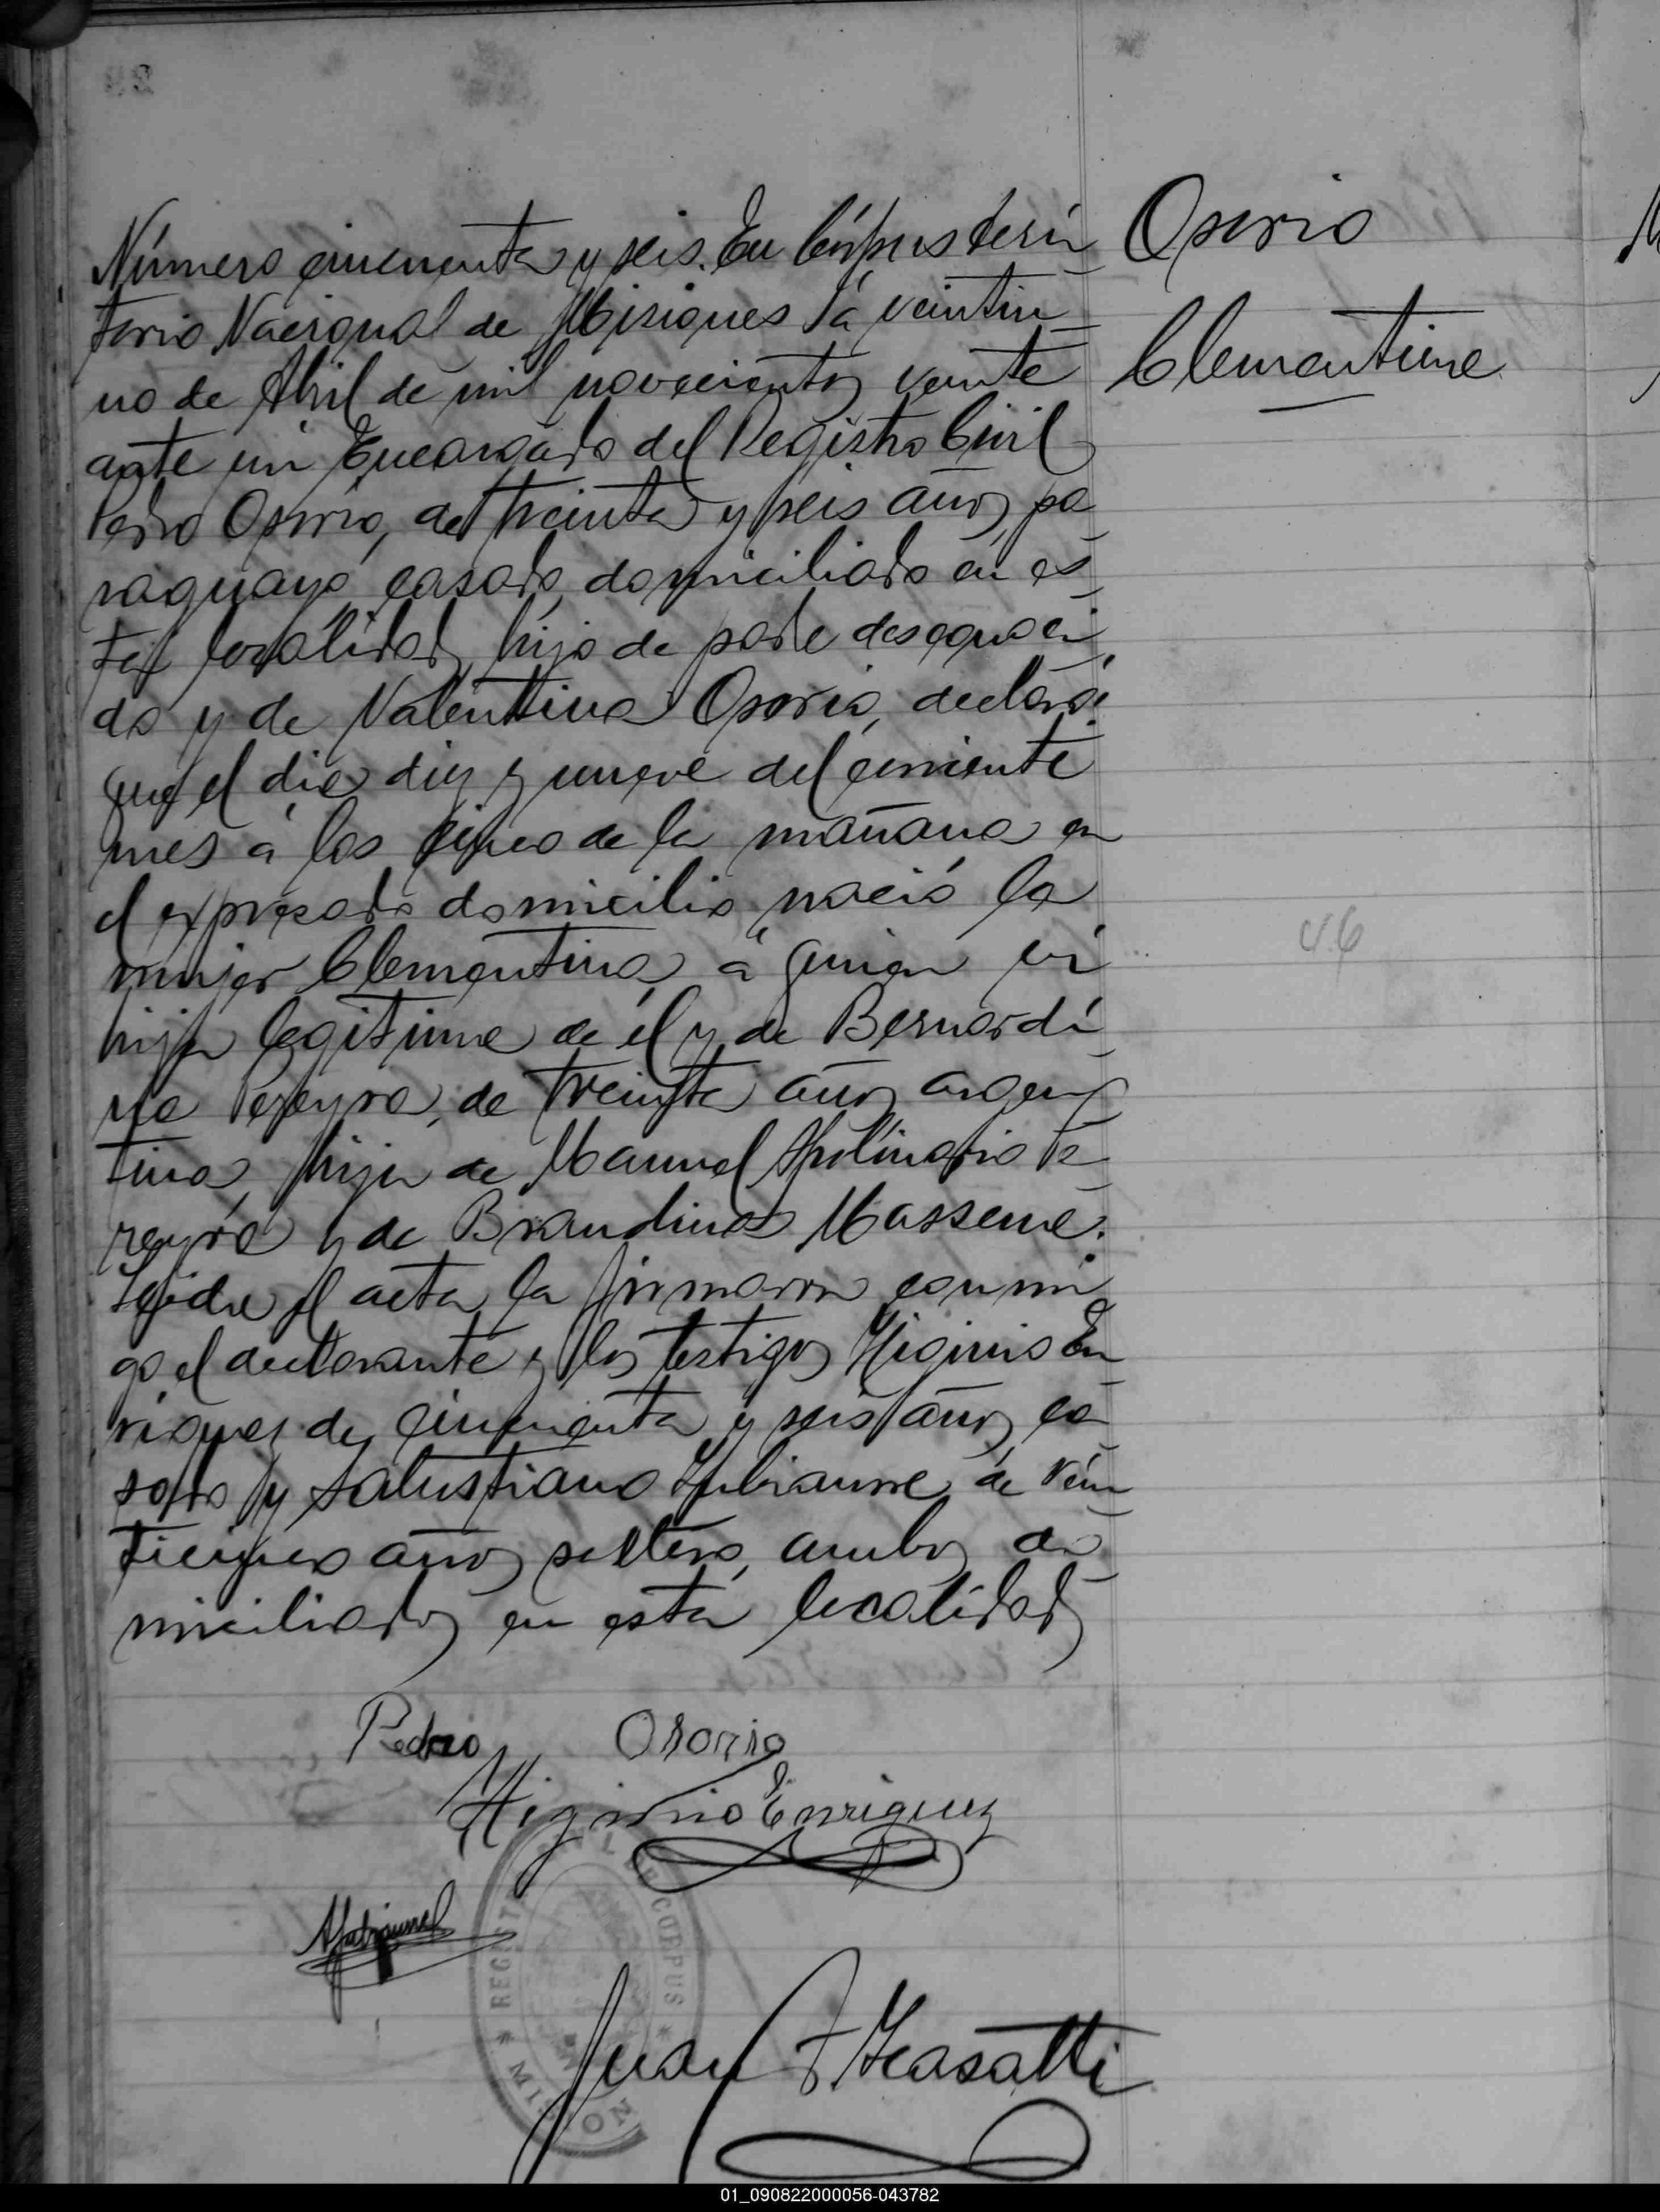 Osorio
Clementina
Número cincuenta y seis. En Córpus Terri
torio Nacional de Misiones á veintiu
no de Abril de mil novecientos veinte
ante mi Encargado del Registro Civil
Pedro Osorio, de treinta y seis años, pa
raguayo, casado, domiciliado en es
ta localidad, hijo de padre desconoci
do y de Valentina Osorio, declaró:
que el dia diez y nueve del corriente
mes á las cinco de la mañana en
el expresado domicilio nació la
mujer Clementina, á quien vi
hija legitima de él y de Bernardi
na Pereyra, de treinta años argen
tina, hija de Manuel Apolinario Pe
reyra y de Brandina
Leida el acta la firmaron conmi
go el declarante y los testigos Higinio En
riquez de cincuenta y seis años, ca
sado y Salustiano de vein
ticinco años, soltero, ambos do
miciliados en esta localidad
46
Pedro Osorio
Higinio Enriquez
REGISTRO CIVIL DE CORPUS * MISIONES *
Juan
01_090822000056-043782